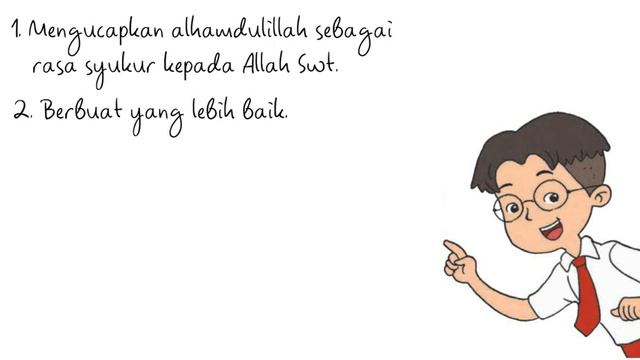 1. Mengucapkan alhamdulillah sebagai
rasa syukur kepada Allah Swt.
2. Berbuat yang lebih baik.